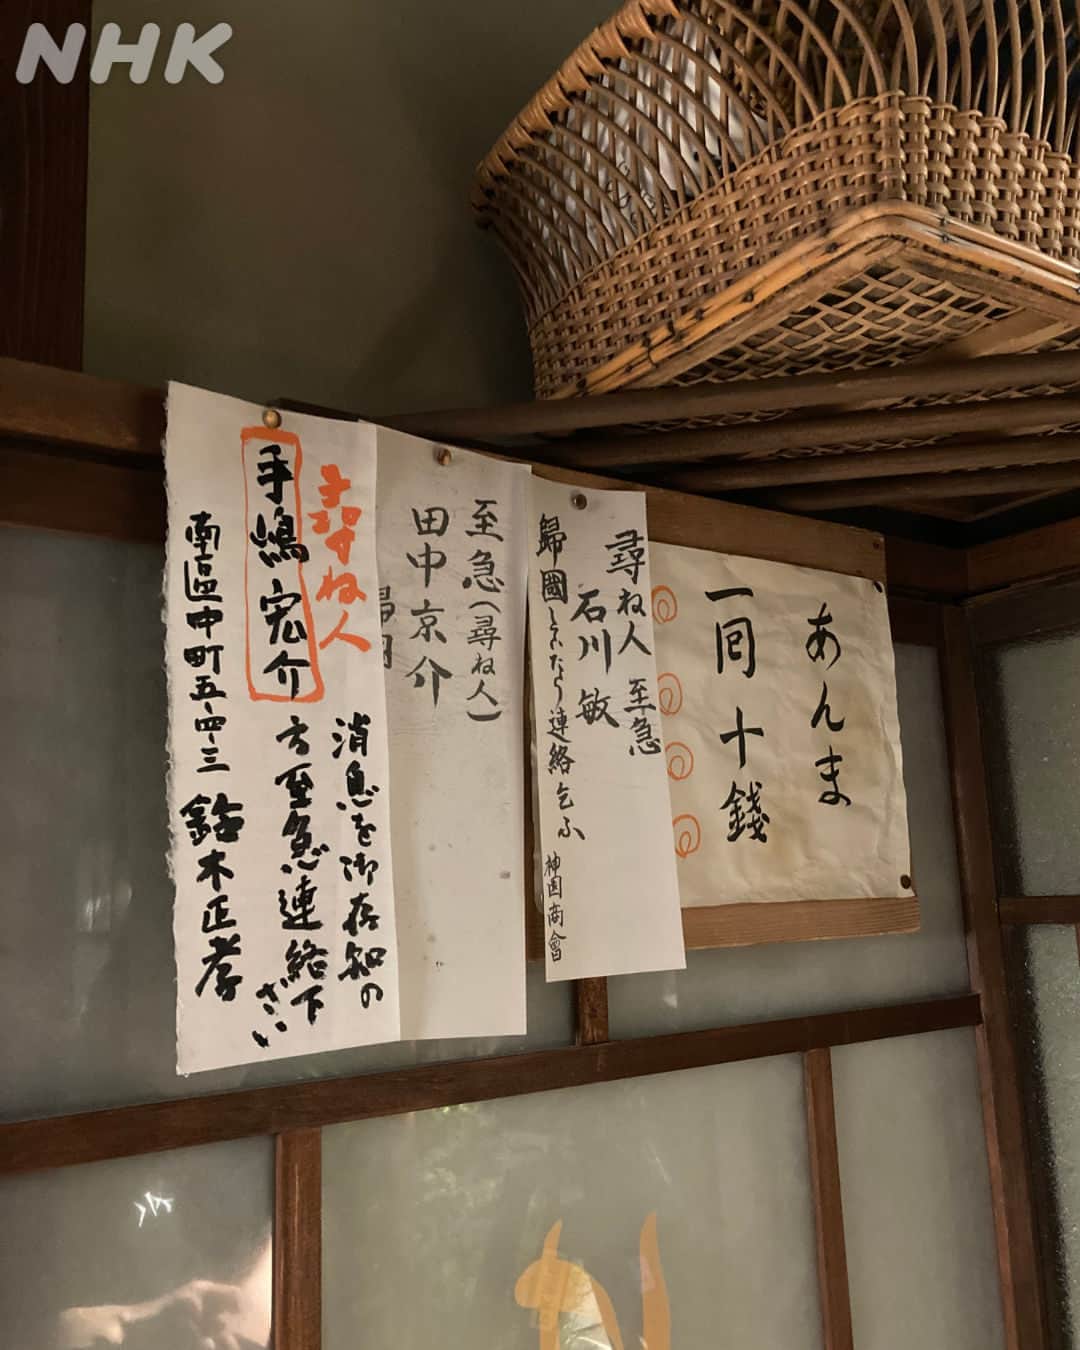 NHK
あんま
一回 十錢
尋ね人 至急
石川 敏
歸國したなら連絡乞ふ
神国商會
至急(尋ね人)
田中京介
尋ね人
手嶋宏介
消息を御存知の
方至急連絡下さい
南區中町五-四-三 鈴木正孝